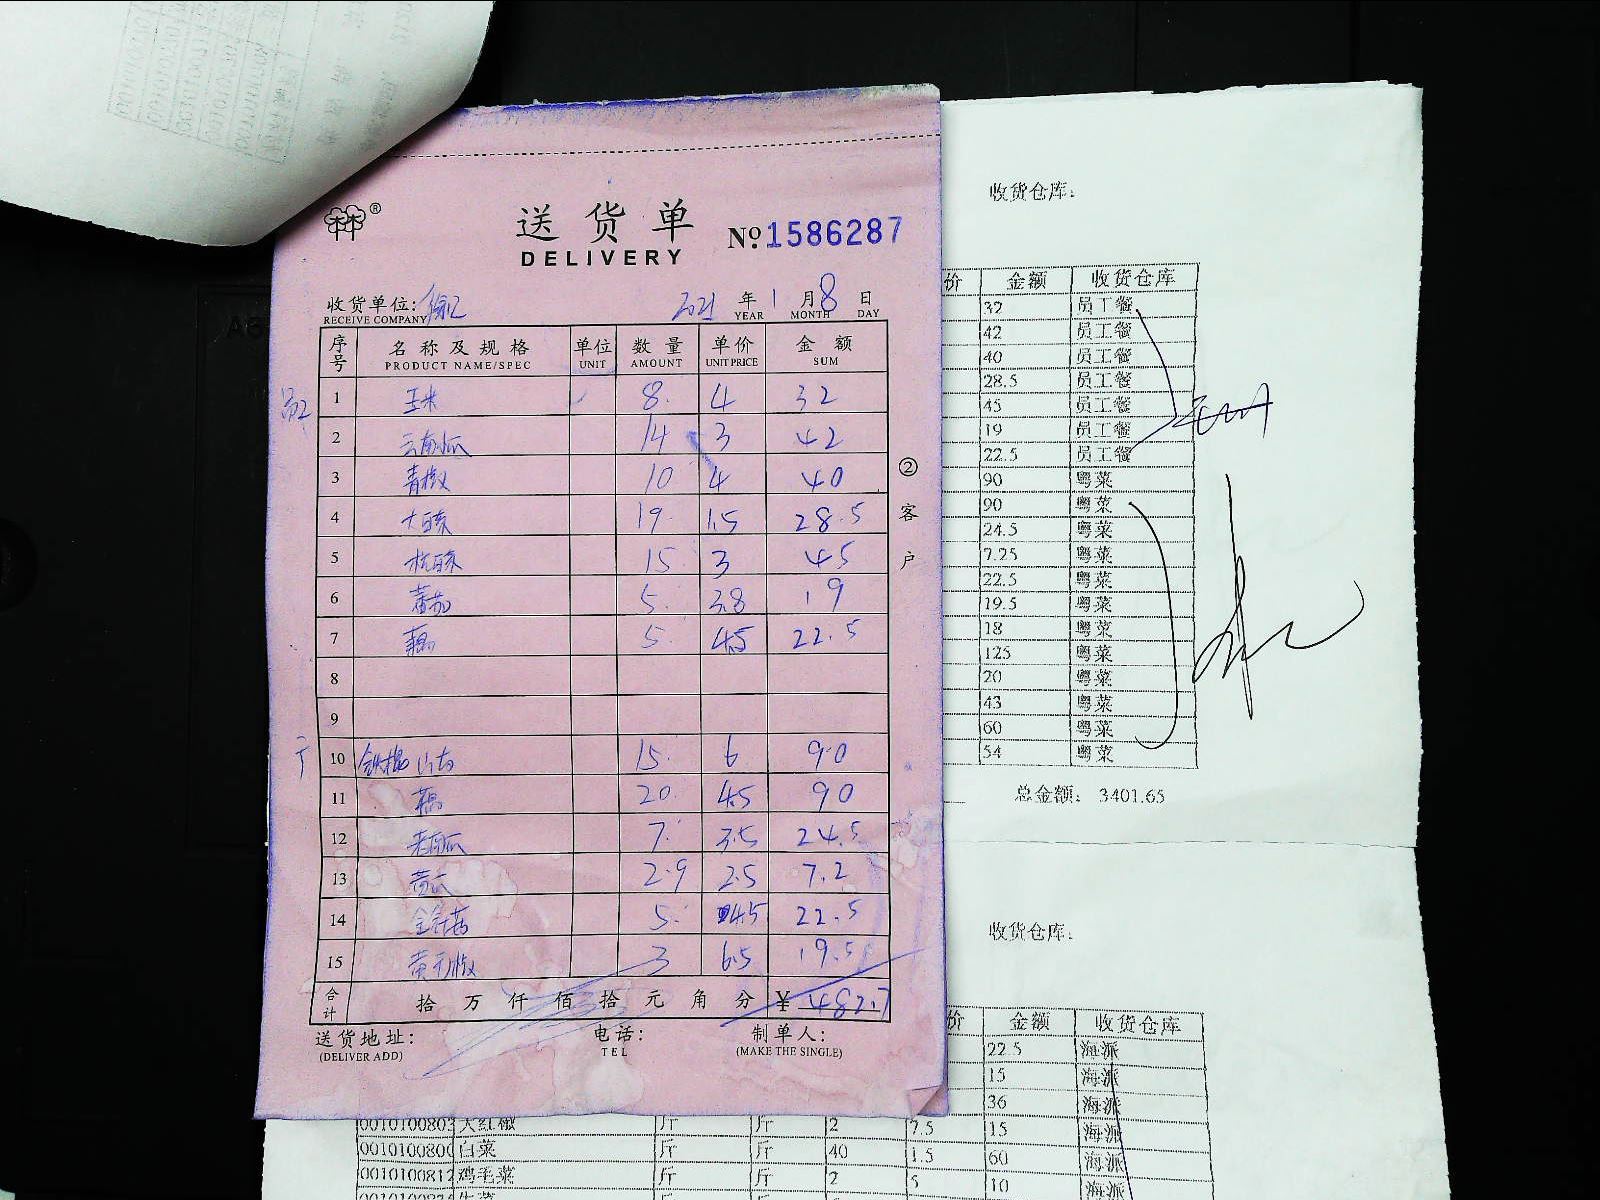 送货单
DELIVERY
№ 1586287
收货单位: 徐汇 2021 年 1 月 8 日
RECEIVE COMPANY YEAR MONTH DAY
序号 名称及规格 单位 数量 单价 金额
PRODUCT NAME/SPEC UNIT AMOUNT UNIT PRICE SUM
1 玉米 8. 4 32
2 云南小瓜 14 3 42
3 青椒 10 4 40
4 大白菜 19. 1.5 28.5
5 杭白菜 15. 3 45
6 蕃茄 5. 3.8 19
7 藕 5. 4.5 22.5
8
9
10 铁棍山药 15. 6 90
11 藕 20. 4.5 90
12 老南瓜 7. 3.5 24.5
13 黄瓜 2.9 2.5 7.2
14 金针菇 5. 4.5 22.5
15 黄彩椒 3 6.5 19.5
合计 拾 万 仟 佰 拾 元 角 分 ¥ 482.7
送货地址: 电话: 制单人:
(DELIVER ADD) TEL (MAKE THE SINGLE)
②客户
收货仓库:
价 金额 收货仓库
32 员工餐
42 员工餐
40 员工餐
28.5 员工餐
45 员工餐
19 员工餐
22.5 员工餐
90 粤菜
90 粤菜
24.5 粤菜
7.25 粤菜
22.5 粤菜
19.5 粤菜
18 粤菜
125 粤菜
20 粤菜
43 粤菜
60 粤菜
54 粤菜
总金额: 3401.65
收货仓库:
价 金额 收货仓库
22.5 海派
15 海派
36 海派
大红椒 斤 斤 2 7.5 15 海派
白菜 斤 斤 40 1.5 60 海派
鸡毛菜 斤 斤 2 5 10 海派